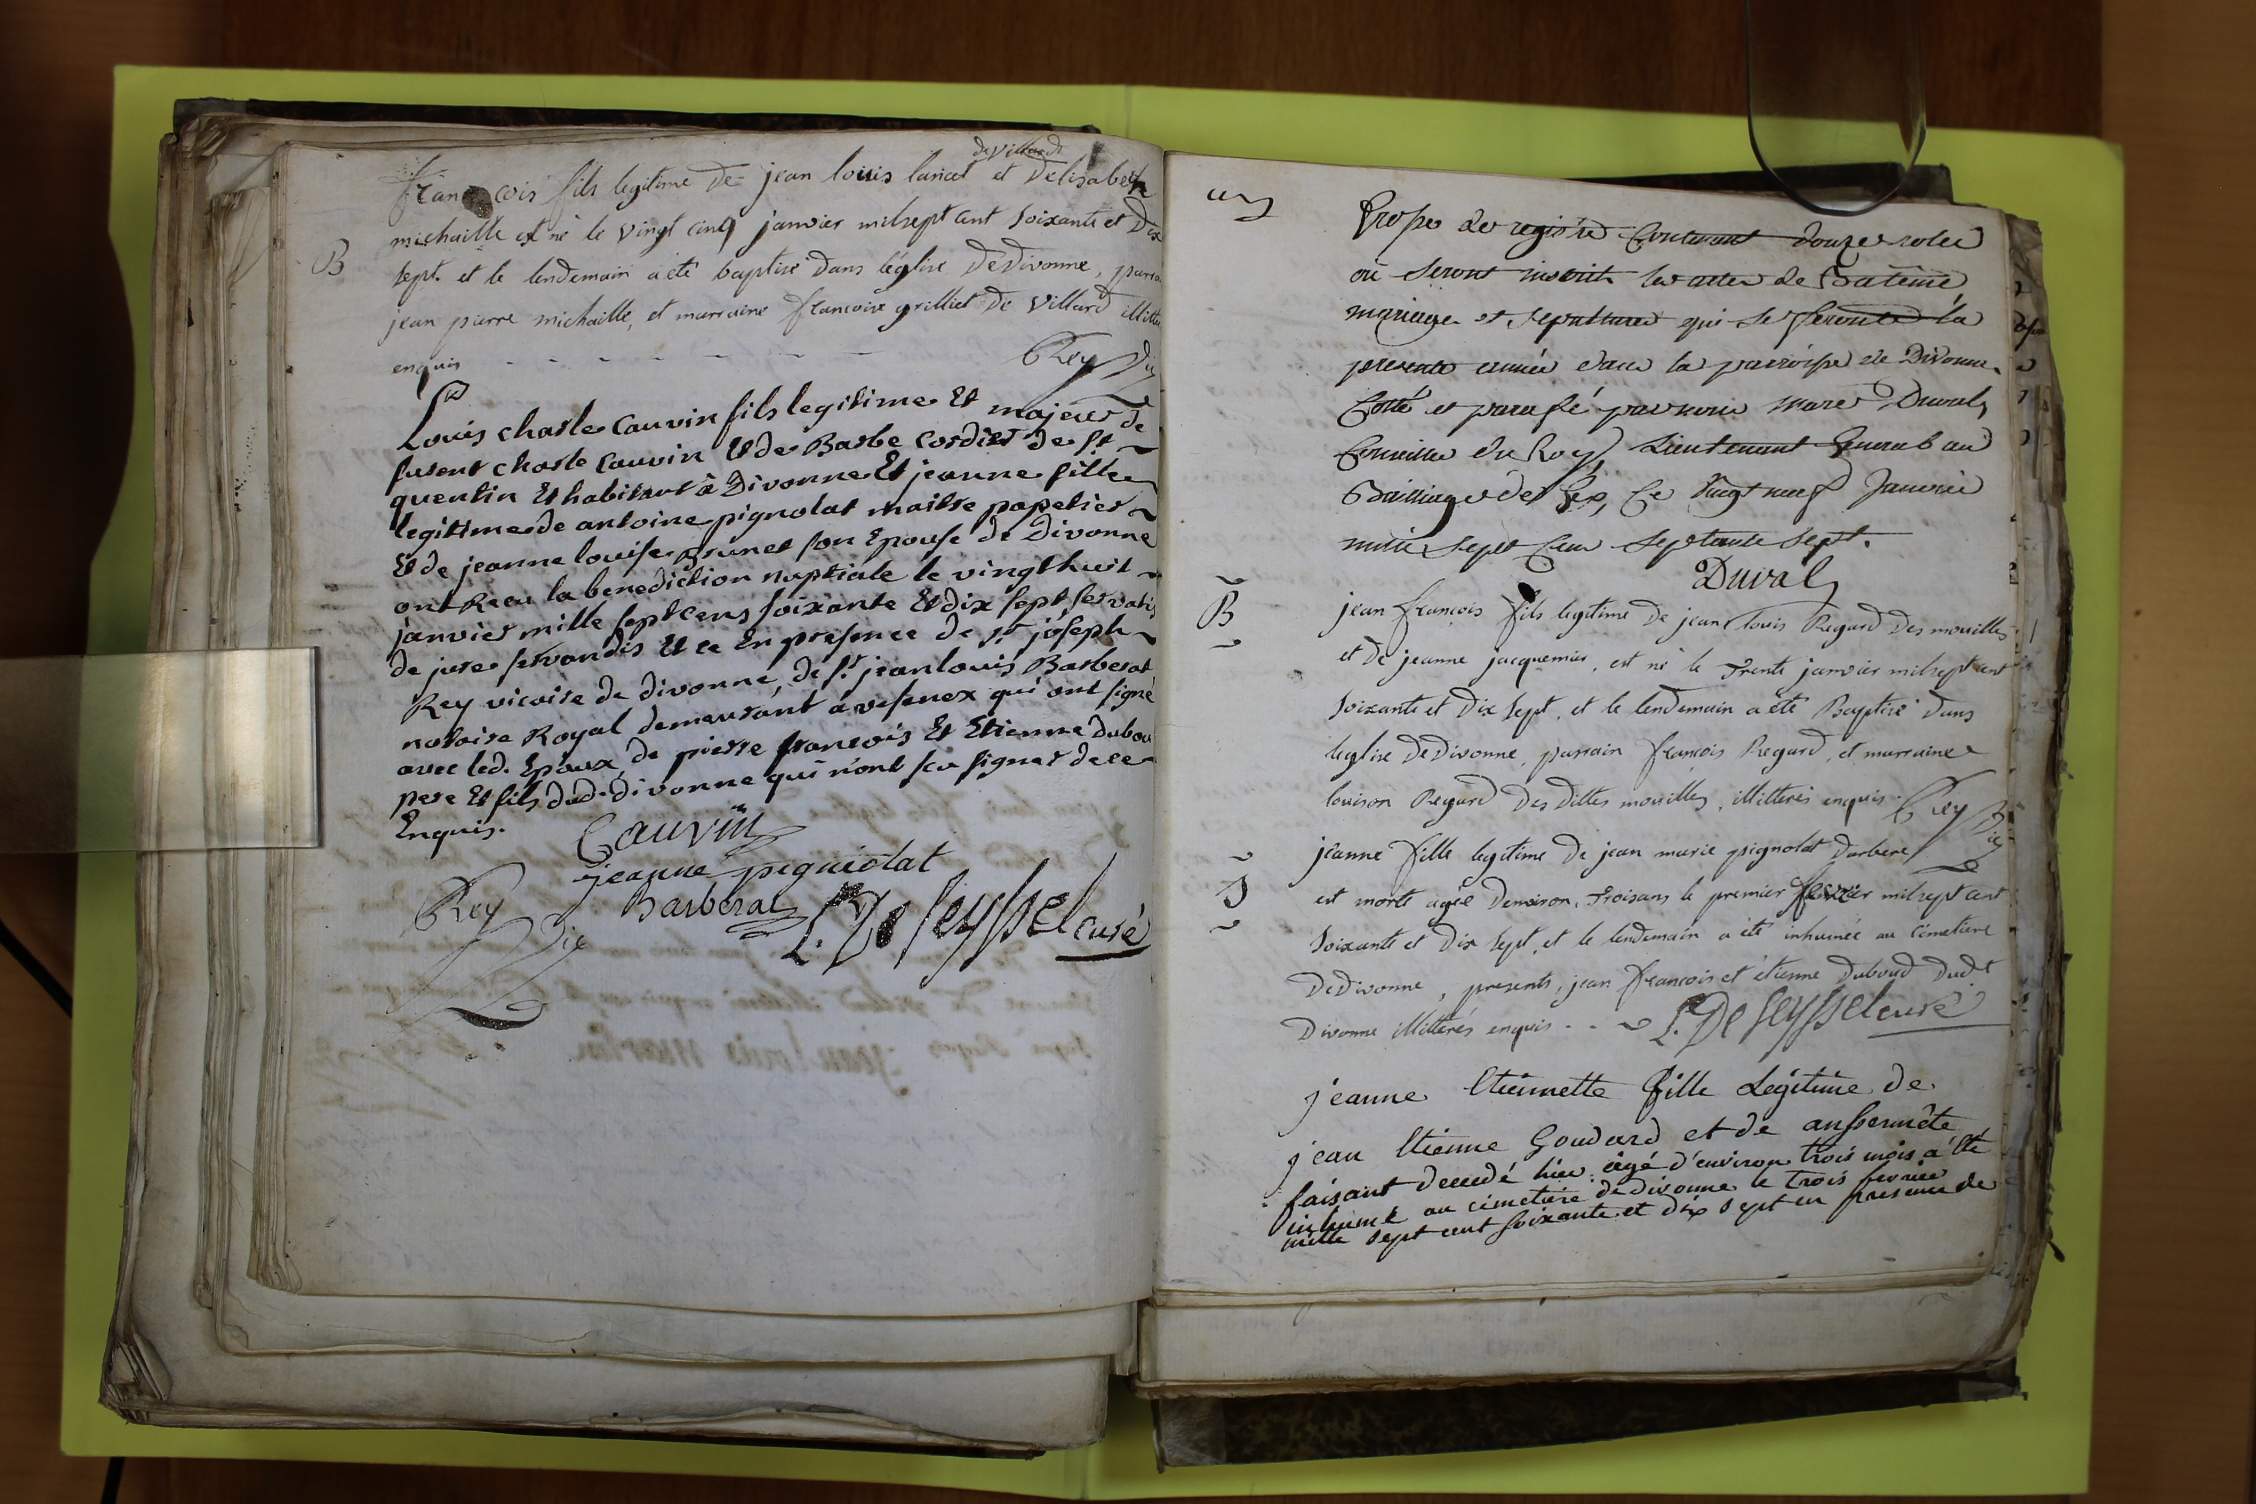 de Villard
françois fils legitime de jean louis lancet et delisabeth
michaille est né le vingt cinq janvier milsept cent soixante et dix
B
sept. et le lendemain a eté baptisé dans léglise De Divonne, parrai
jean pierre michaille, et marraine francoise grilliet de villard illitter
enquis - - - - - - - Rey Vic
Louis charle cauvin fils legitime Et majeur de
furent charle cauvin Et de Barbe cordier de st
quentin Et habitant à Divonne Et jeanne fille
legitime de antoine pignolat maitre papetier
Et de jeanne louise brunet son Epouse de Divonne
ont Recu la benediction nuptiale le vingt huit
janvier mille sept cens soixante Et dix sept servatis
de jure servandis Et ce En presence de sr joseph
Rey vicaire de divonne, de sr jean louis Barberat
notoire Royal demeurant a vesenex qui ont signé
avec led. Epoux, de pierre francois Et Etienne dubou
pere Et fils dud. divonne qui n'ont sçu signer de ce
Enquis.
Cauvin
jeanne pigniolat
Rey Vic
Barberat
L. De Seyssel curé
un
Propre de registre Contenant douze roles
où seront inscrit les actes de Bateme
mariage et sepultures qui se feront la
presente année dans la parroisse de Divonne.
Cotté et paraffé par nous marc Duval
Conseiller du Roy Lieutenant General au
Bailliage de Gex, Ce vingt neuf Janvier
mille sept Cent septante sept.
Duval
B
jean françois fils legitime de jean louis Regard des mouilles
et de jeanne jacquemier, est né le trente janvier milsept cent
soixante et dix sept, et le lendemain a eté Baptisé dans
leglise De Divonne, parrain françois Regard, et marraine
louison Regard des dittes mouilles, illitterés enquis. Rey Vic
S
jeanne fille legitime de jean marie pignolat darbere
est morte agée denviron trois ans le premier fevrier milsept cent
soixante et dix sept, et le lendemain a été inhumée au cimetiere
De Divonne, presents, jean francois et étienne duboud dudt
Divonne illitterés enquis - - L. De Seyssel curé
jeanne Etiennette fille Légitime de
jean Etienne Goudard et de anssermête
faisant decedé hier agé d'environ trois mois a été
inhumé au cimetiere de divonne le trois fevrier
mille sept cent soixante et dix sept en presence de